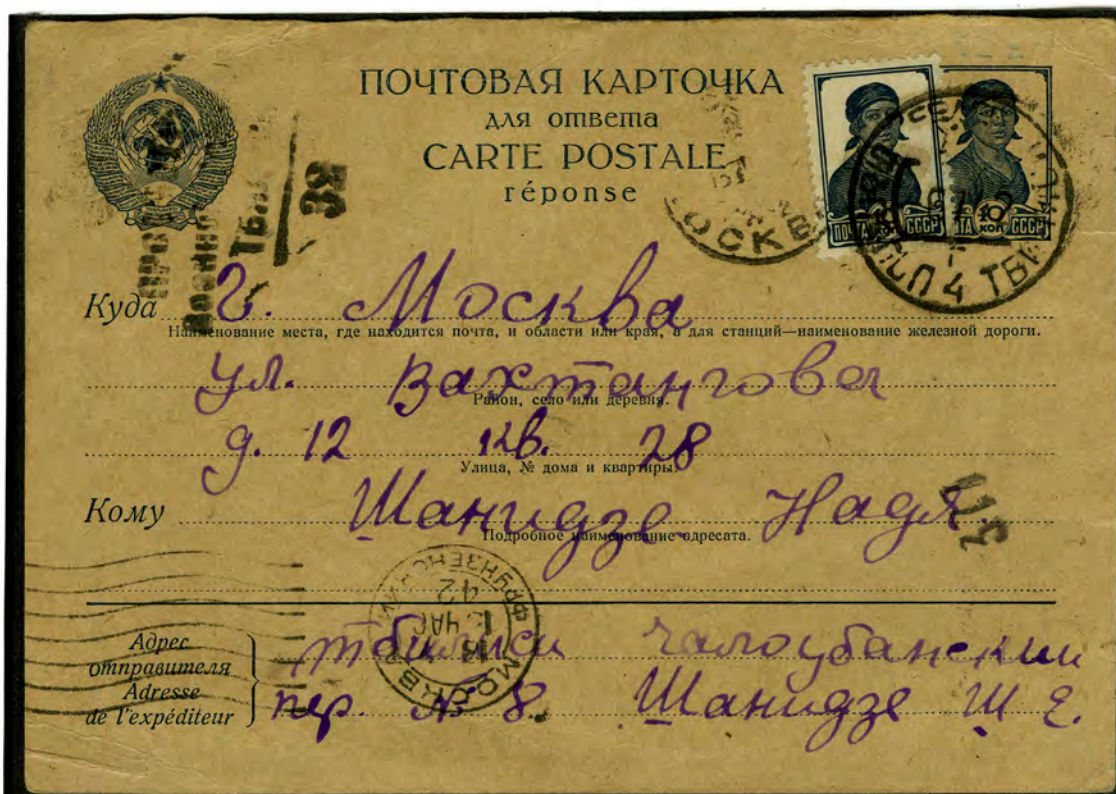 ПОЧТОВАЯ КАРТОЧКА
для ответа
CARTE POSTALE
réponse
ПОЧТА 10 СССР
10 КОП
МОСКВА
П 4 ТБИЛИСИ
38
Куда г. Москва
Наименование места, где находится почта, и области или края, а для станций—наименование железной дороги.
ул. Вахтангова
Район, село или деревня.
д. 12 кв. 28
Улица, № дома и квартиры.
Кому Шанидзе Надя
Подробное наименование адресата.
42
МОСКВА
Адрес отправителя
Adresse de l'expéditeur
тбилиси чалоубански
пер. № 8. Шанидзе Ш Е.